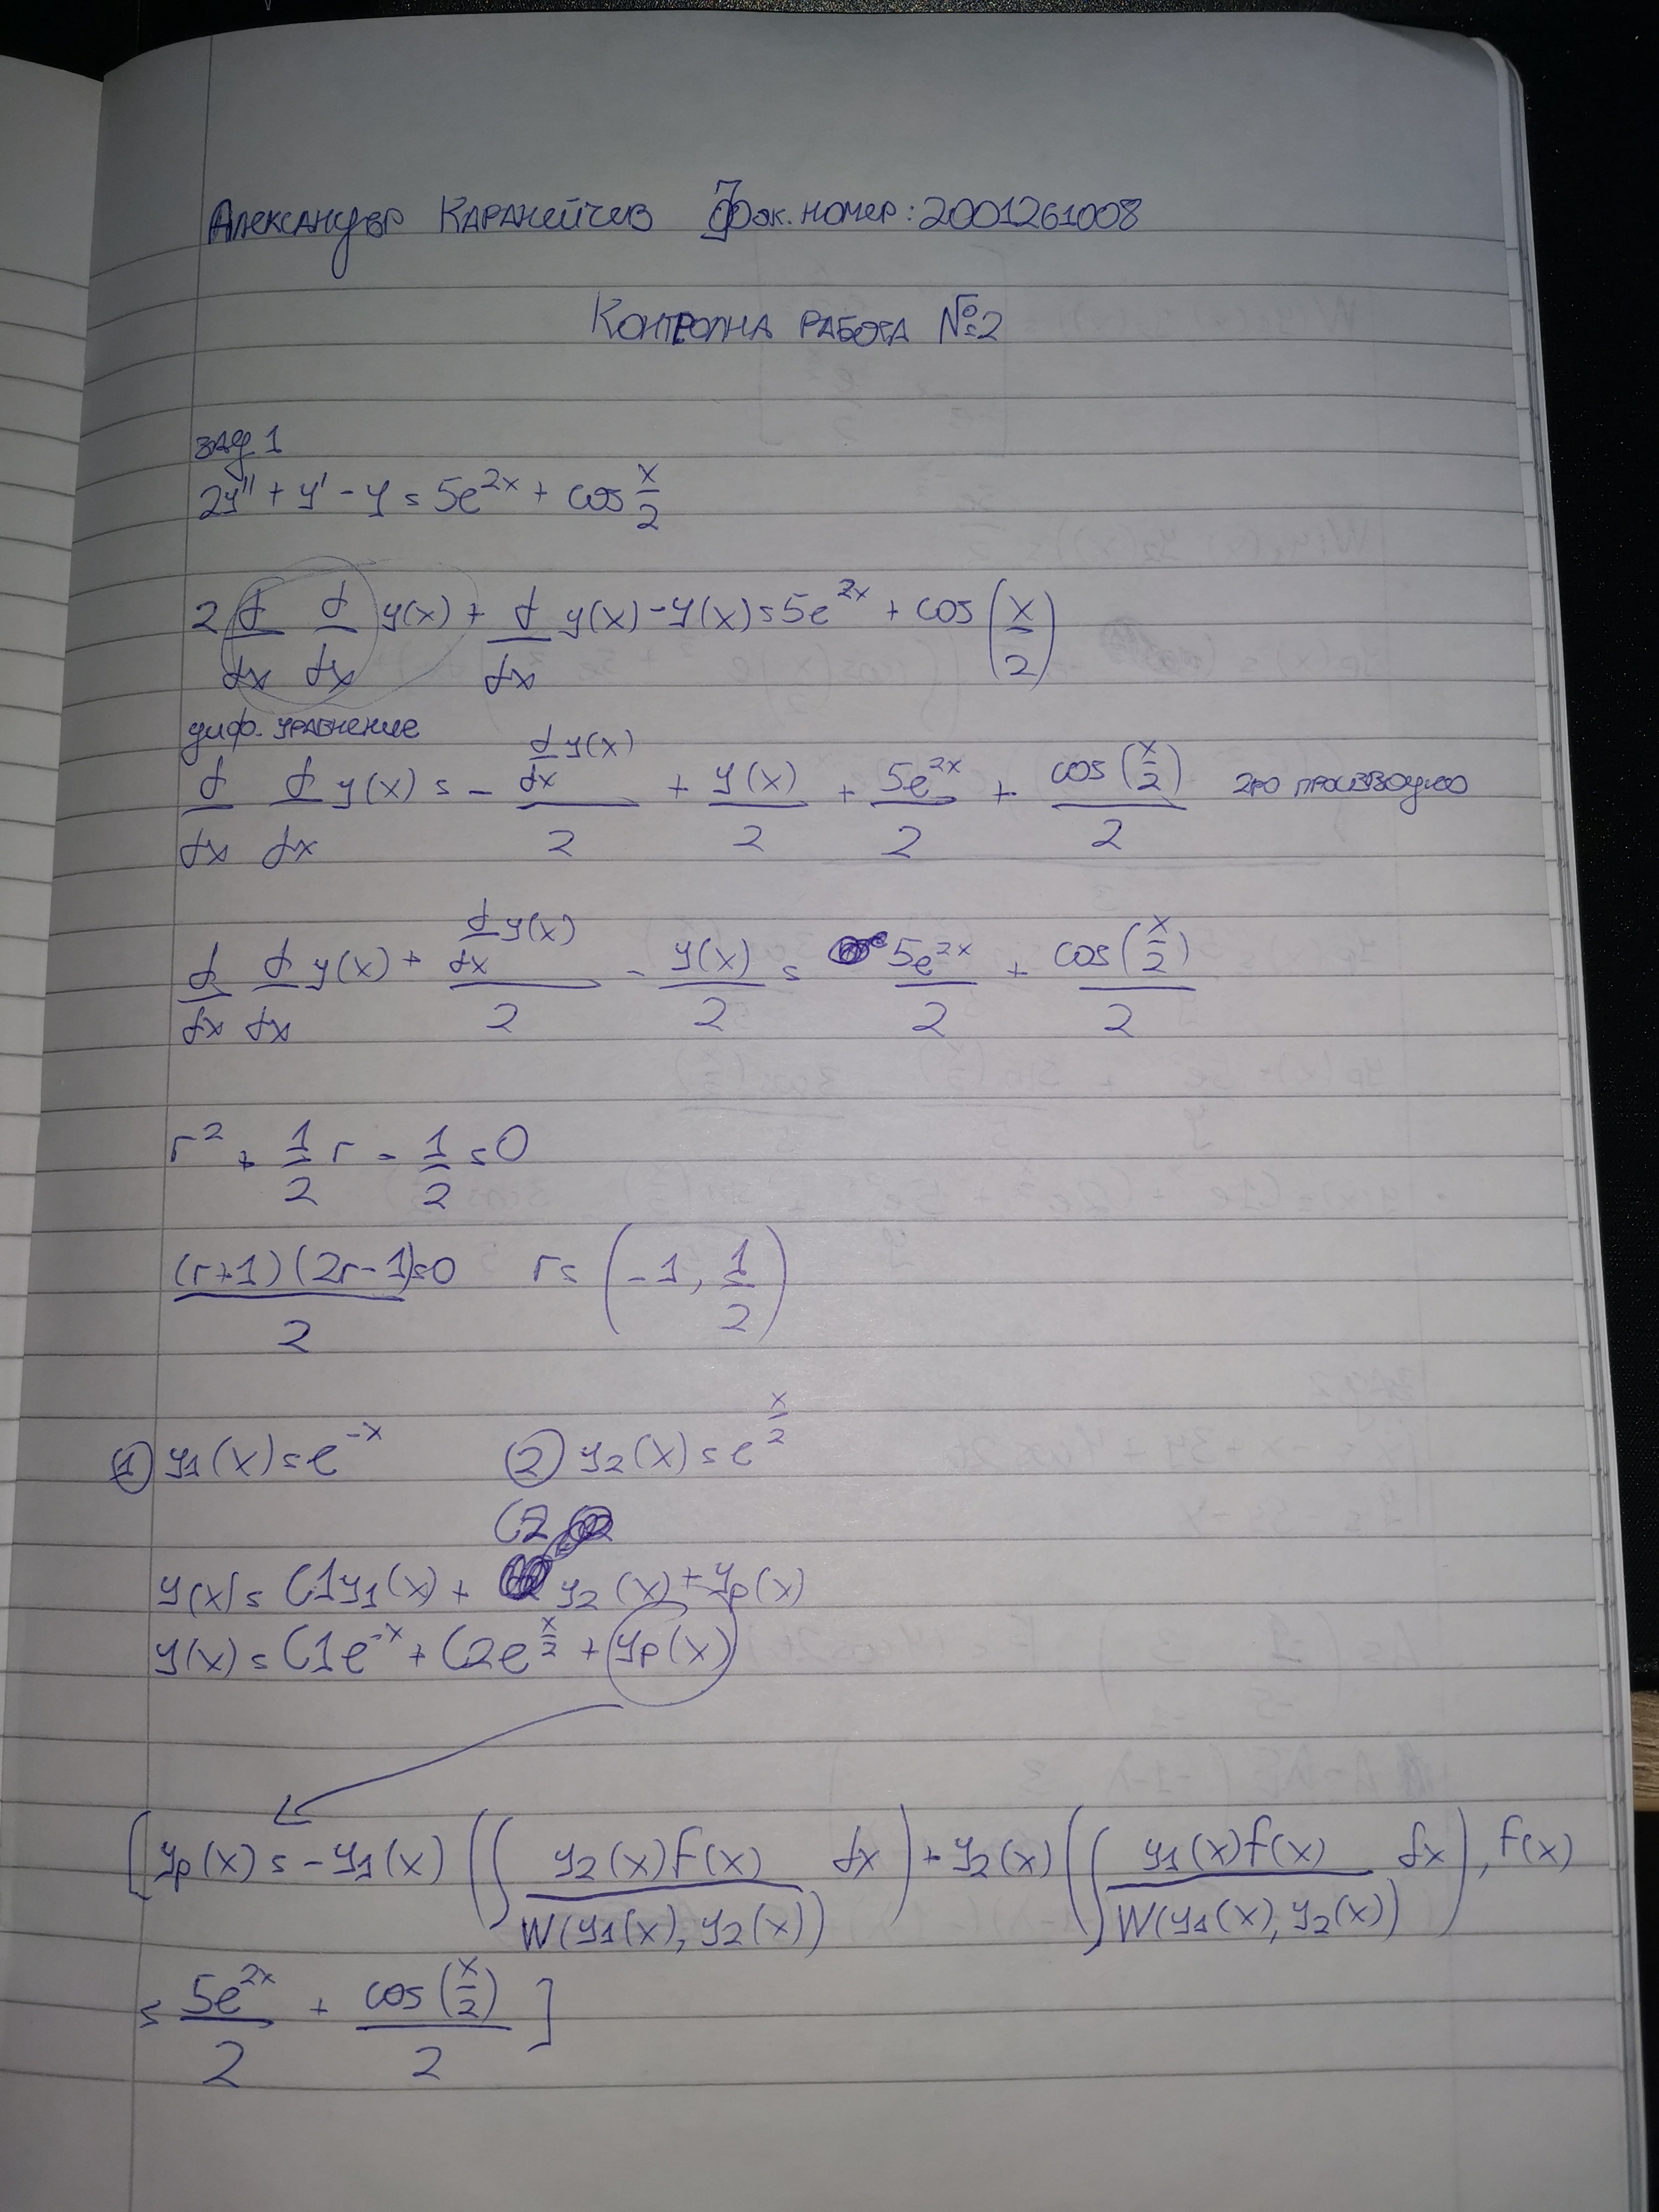 Александър Каранейчев Фак. номер: 2001261008
Контролна работа №2
зад 1
2y'' + y' - y = 5e^{2x} + cos x/2
2 d/dx d/dx y(x) + d/dx y(x) - y(x) = 5e^{2x} + cos(x/2)
диф. уравнение
d/dx d/dx y(x) = - (d/dx y(x))/2 + y(x)/2 + 5e^{2x}/2 + cos(x/2)/2 2ро производно
d/dx d/dx y(x) + (d/dx y(x))/2 - y(x)/2 = 5e^{2x}/2 + cos(x/2)/2
r² + 1/2 r - 1/2 = 0
(r+1)(2r-1)/2 = 0 r = (-1, 1/2)
① y1(x) = e^{-x} ② y2(x) = e^{x/2}
y(x) = C1y1(x) + C2 y2(x) + yp(x)
y(x) = C1e^{-x} + C2e^{x/2} + yp(x)
[yp(x) = -y1(x) (∫ y2(x)f(x)/W(y1(x), y2(x)) dx) + y2(x) (∫ y1(x)f(x)/W(y1(x), y2(x)) dx), f(x)
= 5e^{2x}/2 + cos(x/2)/2]